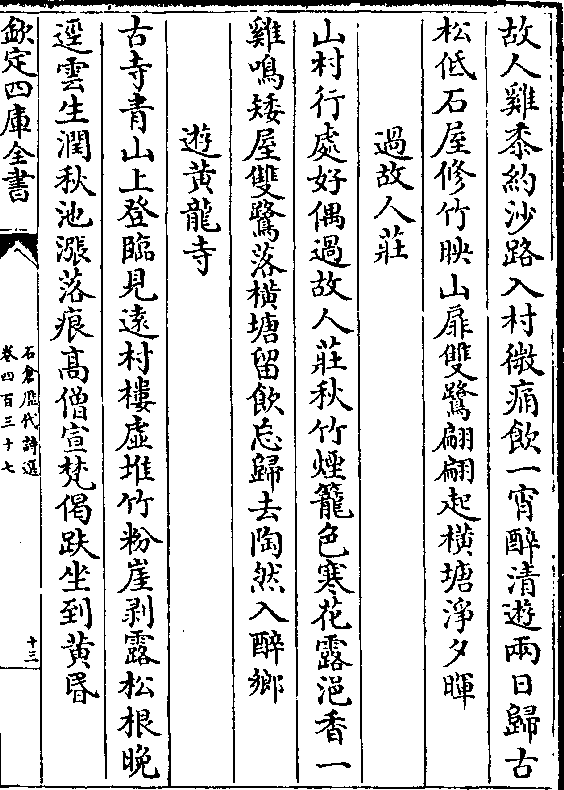 故人雞黍約沙路入村微痛飲一宵醉清遊兩日歸古
松低石屋修竹映山扉雙鷺翩翩起橫塘淨夕暉
過故人莊
山村行處好偶過故人莊秋竹煙籠色寒花露浥香一
雞鳴矮屋雙鷺落橫塘留飲忘歸去陶然入醉鄉
遊黄龍寺
古寺青山上登臨見遠村樓虚堆竹粉崖剥露松根晚
逕雲生潤秋池漲落痕髙僧宣梵偈趺坐到黄昬
欽定四庫全書
石倉歴代詩選
卷四百三十七
十三